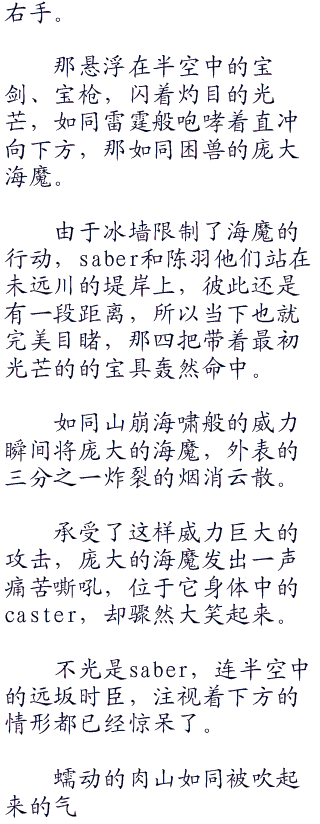 右手。
那悬浮在半空中的宝
剑、宝枪，闪着灼目的光
芒，如同雷霆般咆哮着直冲
向下方，那如同困兽的庞大
海魔。
由于冰墙限制了海魔的
行动，saber和陈羽他们站在
未远川的堤岸上，彼此还是
有一段距离，所以当下也就
完美目睹，那四把带着最初
光芒的的宝具轰然命中。
如同山崩海啸般的威力
瞬间将庞大的海魔，外表的
三分之一炸裂的烟消云散。
承受了这样威力巨大的
攻击，庞大的海魔发出一声
痛苦嘶吼，位于它身体中的
caster，却骤然大笑起来。
不光是saber，连半空中
的远坂时臣，注视着下方的
情形都已经惊呆了。
蠕动的肉山如同被吹起
来的气